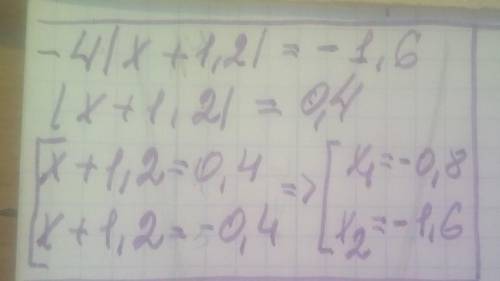 -4|x+1,2|=-1,6
|x+1,2|=0,4
[x+1,2=0,4
x+1,2=-0,4
=> [x₁=-0,8
x₂=-1,6